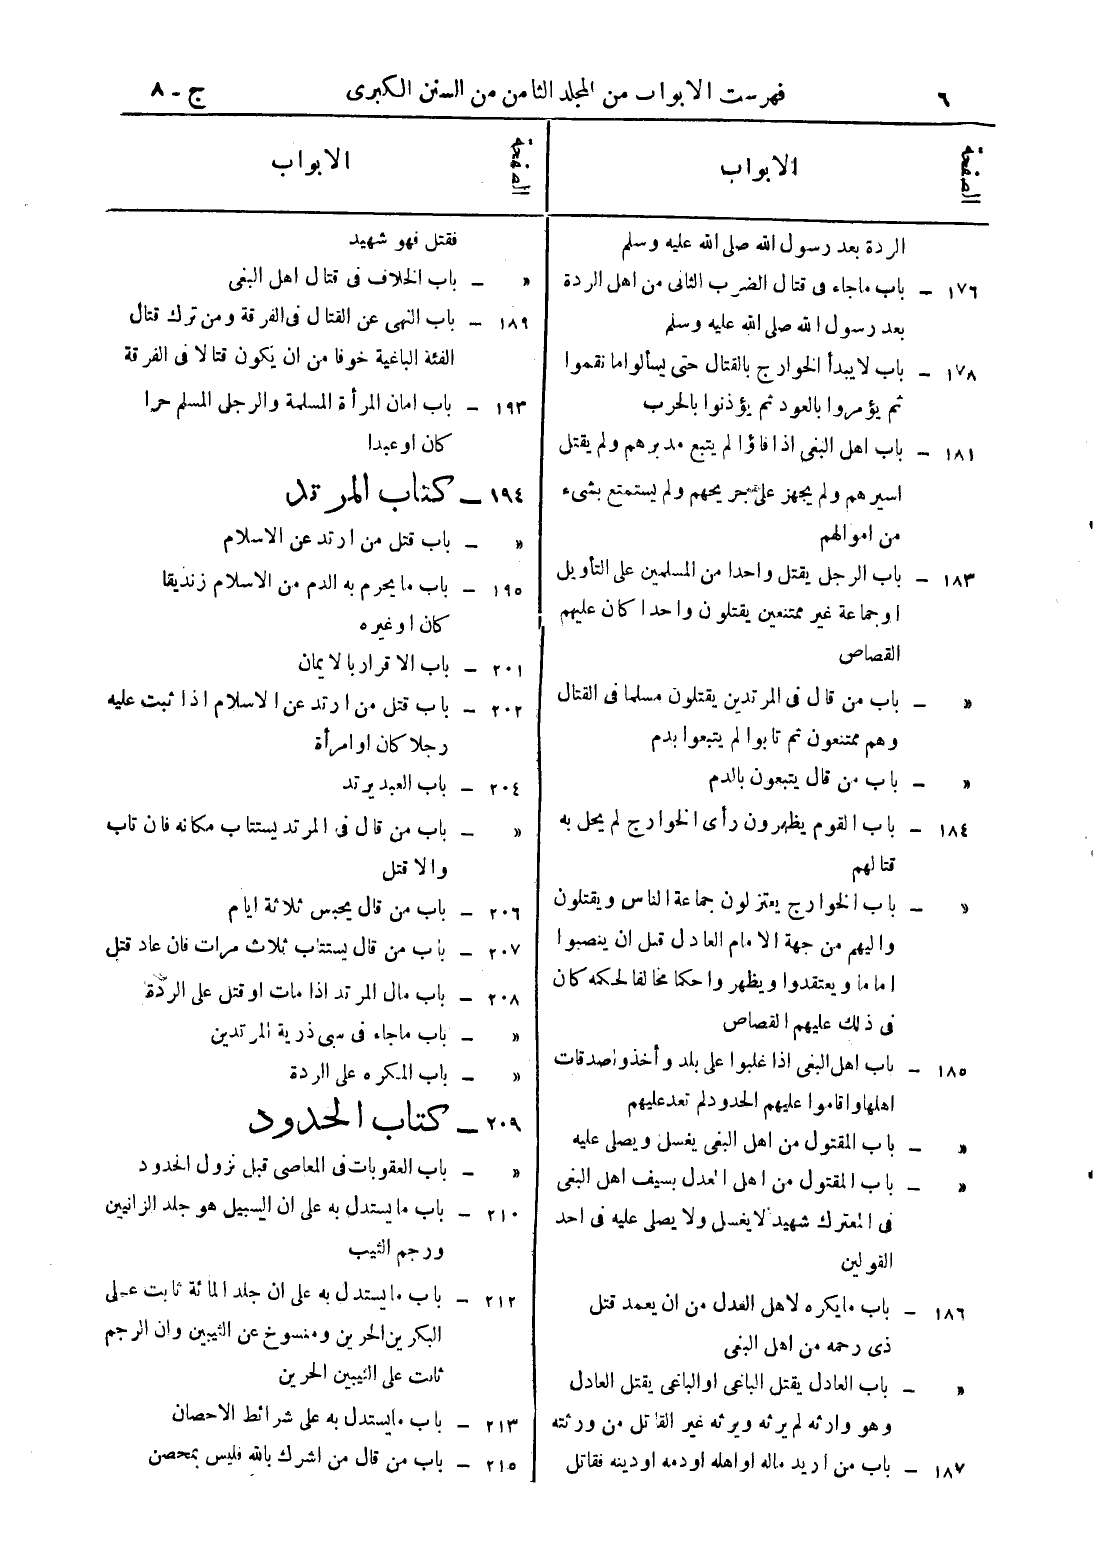 ٦ فهرست الابواب من المجلد الثامن من السنن الكبرى ج - ٨
الصفحة الابواب
الردة بعد رسول الله صلى الله عليه وسلم
١٧٦ - باب ماجاء فى قتال الضرب الثانى من اهل الردة
بعد رسول الله صلى الله عليه وسلم
١٧٨ - باب لا يبدأ الخوارج بالقتال حتى يسألوا ما نقموا
ثم يؤمروا بالعود ثم يؤذنوا بالحرب
١٨١ - باب اهل البغى اذا فاؤا لم يتبع مدبرهم ولم يقتل
اسيرهم ولم يجهز على جريحهم ولم يستمتع بشىء
من اموالهم
١٨٣ - باب الرجل يقتل واحدا من المسلمين على التأويل
اوجماعة غير ممتنعين يقتلون واحدا كان عليهم
القصاص
» - باب من قال فى المرتدين يقتلون مسلما فى القتال
وهم ممتنعون ثم تابوا لم يتبعوا بدم
» - باب من قال يتبعون بالدم
١٨٤ - باب القوم يظهرون رأى الخوارج لم يحل به
قتالهم
» - باب الخوارج يعتزلون جماعة الناس ويقتلون
واليهم من جهة الامام العادل قبل ان ينصبوا
اماما ويعتقدوا ويظهروا حكما مخالفا لحكمه كان
فى ذلك عليهم القصاص
١٨٥ - باب اهل البغى اذا غلبوا على بلد وأخذوا صدقات
اهلها واقاموا عليهم الحدود لم تعد عليهم
» - باب المقتول من اهل البغى يغسل ويصلى عليه
» - باب المقتول من اهل العدل بسيف اهل البغى
فى المعترك شهيد لا يغسل ولا يصلى عليه فى احد
القولين
١٨٦ - باب ما يكره لاهل العدل من ان يعمد قتل
ذى رحمه من اهل البغى
» - باب العادل يقتل الباغى او الباغى يقتل العادل
وهو وارثه لم يرثه ويرثه غير القاتل من ورثته
١٨٧ - باب من اريد ماله او اهله او دمه او دينه فقاتل
الصفحة الابواب
فقتل فهو شهيد
» - باب الخلاف فى قتال اهل البغى
١٨٩ - باب النهى عن القتال فى الفرقة ومن ترك قتال
الفئة الباغية خوفا من ان يكون قتالا فى الفرقة
١٩٣ - باب امان المرأة المسلمة والرجل المسلم حرا
كان اوعبدا
١٩٤ - كتاب المرتد
» - باب قتل من ارتد عن الاسلام
١٩٥ - باب ما يحرم به الدم من الاسلام زنديقا
كان اوغيره
٢٠١ - باب الاقرار بالايمان
٢٠٢ - باب قتل من ارتد عن الاسلام اذا ثبت عليه
رجلا كان او امرأة
٢٠٤ - باب العبد يرتد
» - باب من قال فى المرتد يستتاب مكانه فان تاب
والا قتل
٢٠٦ - باب من قال يحبس ثلاثة ايام
٢٠٧ - باب من قال يستتاب ثلاث مرات فان عاد قتل
٢٠٨ - باب مال المرتد اذا مات او قتل على الردة
» - باب ماجاء فى سبى ذرية المرتدين
» - باب المكره على الردة
٢٠٩ - كتاب الحدود
» - باب العقوبات فى المعاصى قبل نزول الحدود
٢١٠ - باب ما يستدل به على ان السبيل هو جلد الزانيين
ورجم الثيب
٢١٢ - باب ما يستدل به على ان جلد المائة ثابت على
البكرين الحرين ومنسوخ عن الثيبين وان الرجم
ثابت على الثيبين الحرين
٢١٣ - باب ما يستدل به على شرائط الاحصان
٢١٥ - باب من قال من اشرك بالله فليس بمحصن